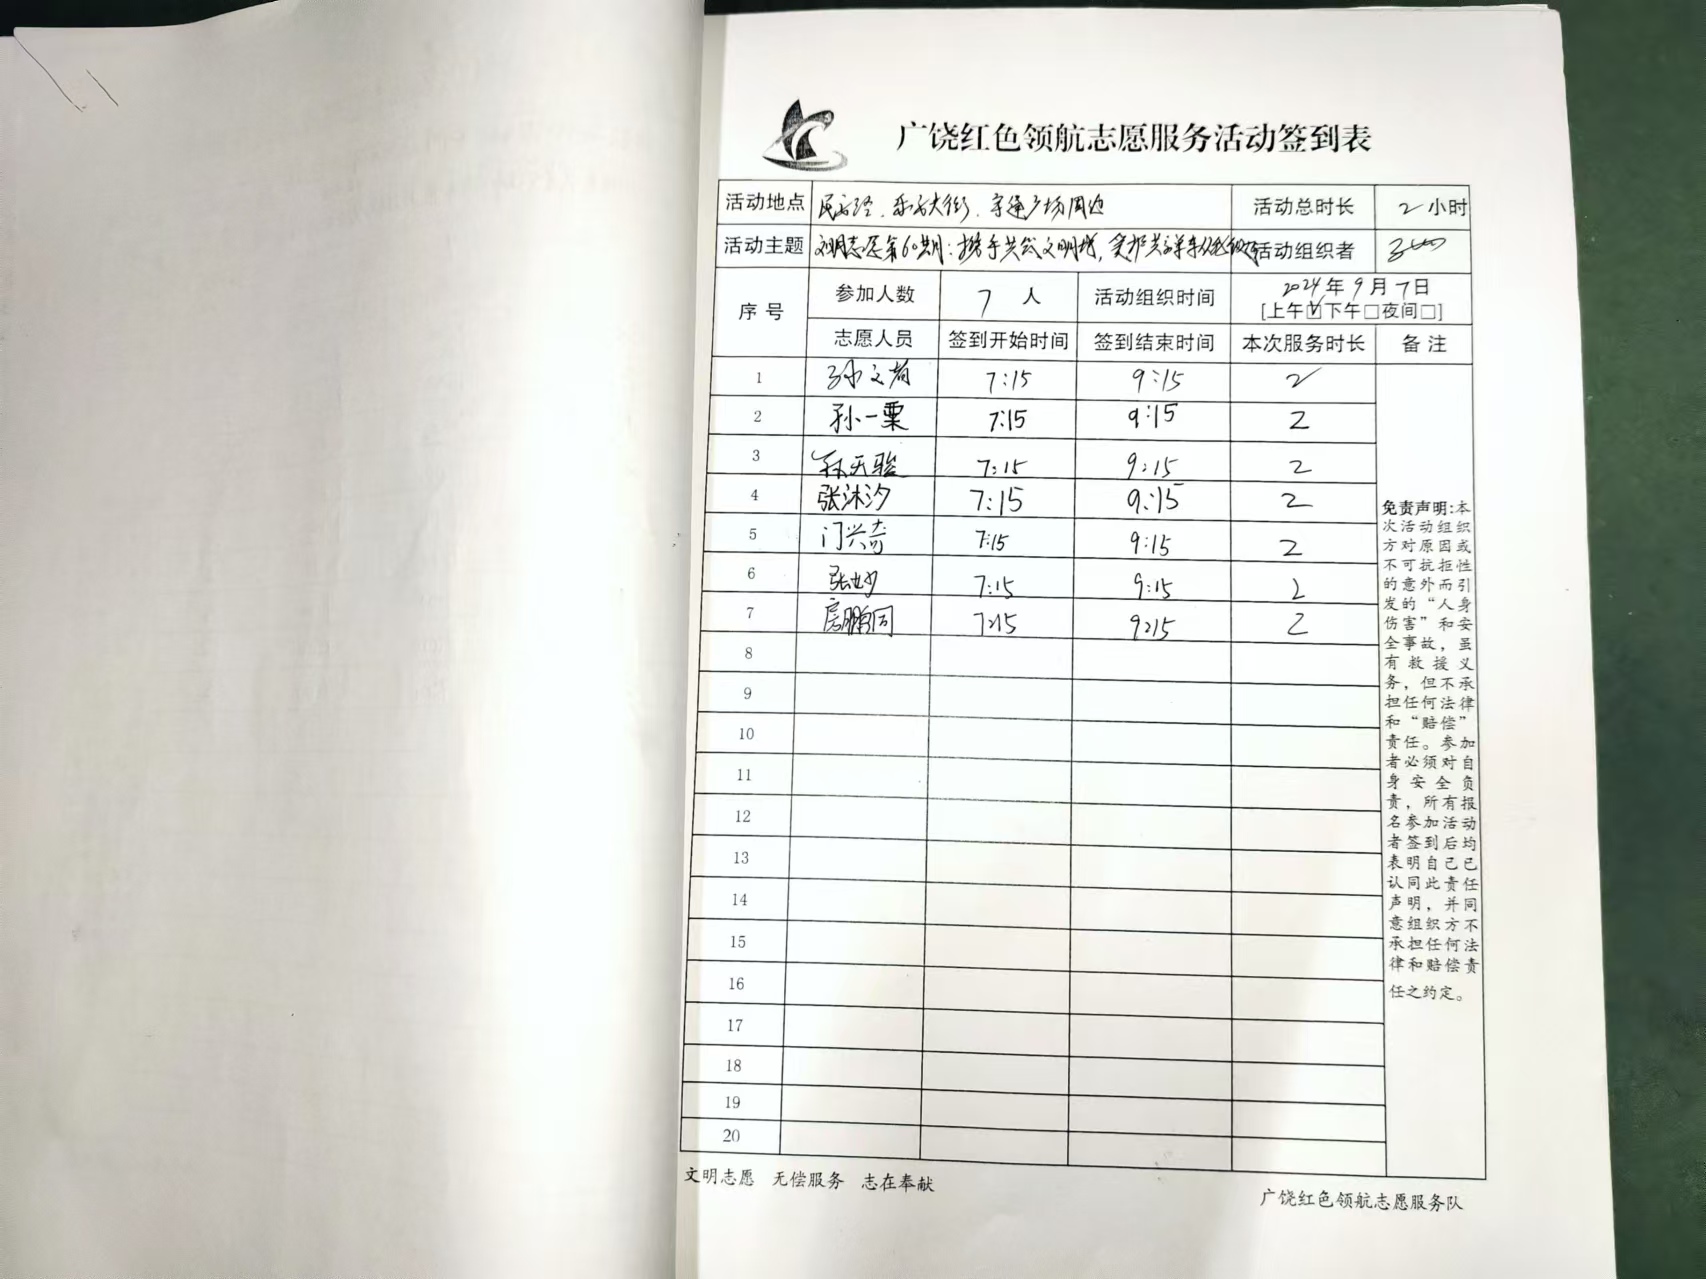 广饶红色领航志愿服务活动签到表
活动地点 乐安大街 广场周边 活动总时长 2小时
活动主题 文明志愿第60期:携手共 文明 共享单车 活动组织者
序号 参加人数 7人 活动组织时间 2024年9月7日
[上午☑下午□夜间□]
志愿人员 签到开始时间 签到结束时间 本次服务时长 备注
1 孙文 7:15 9:15 2
2 孙一粟 7:15 9:15 2
3 孙天骏 7:15 9:15 2
4 张沐汐 7:15 9:15 2
5 门兴奇 7:15 9:15 2
6 张妙 7:15 9:15 2
7 房鹏同 7:15 9:15 2
8
9
10
11
12
13
14
15
16
17
18
19
20
免责声明:本
次活动组织
方对原因或
不可抗拒性
的意外而引
发的“人身
伤害”和安
全事故,虽
有救援义
务,但不承
担任何法律
和“赔偿”
责任。参加
者必须对自
身安全负
责,所有报
名参加活动
者签到后均
表明自己已
认同此责任
声明,并同
意组织方不
承担任何法
律和赔偿责
任之约定。
文明志愿 无偿服务 志在奉献
广饶红色领航志愿服务队